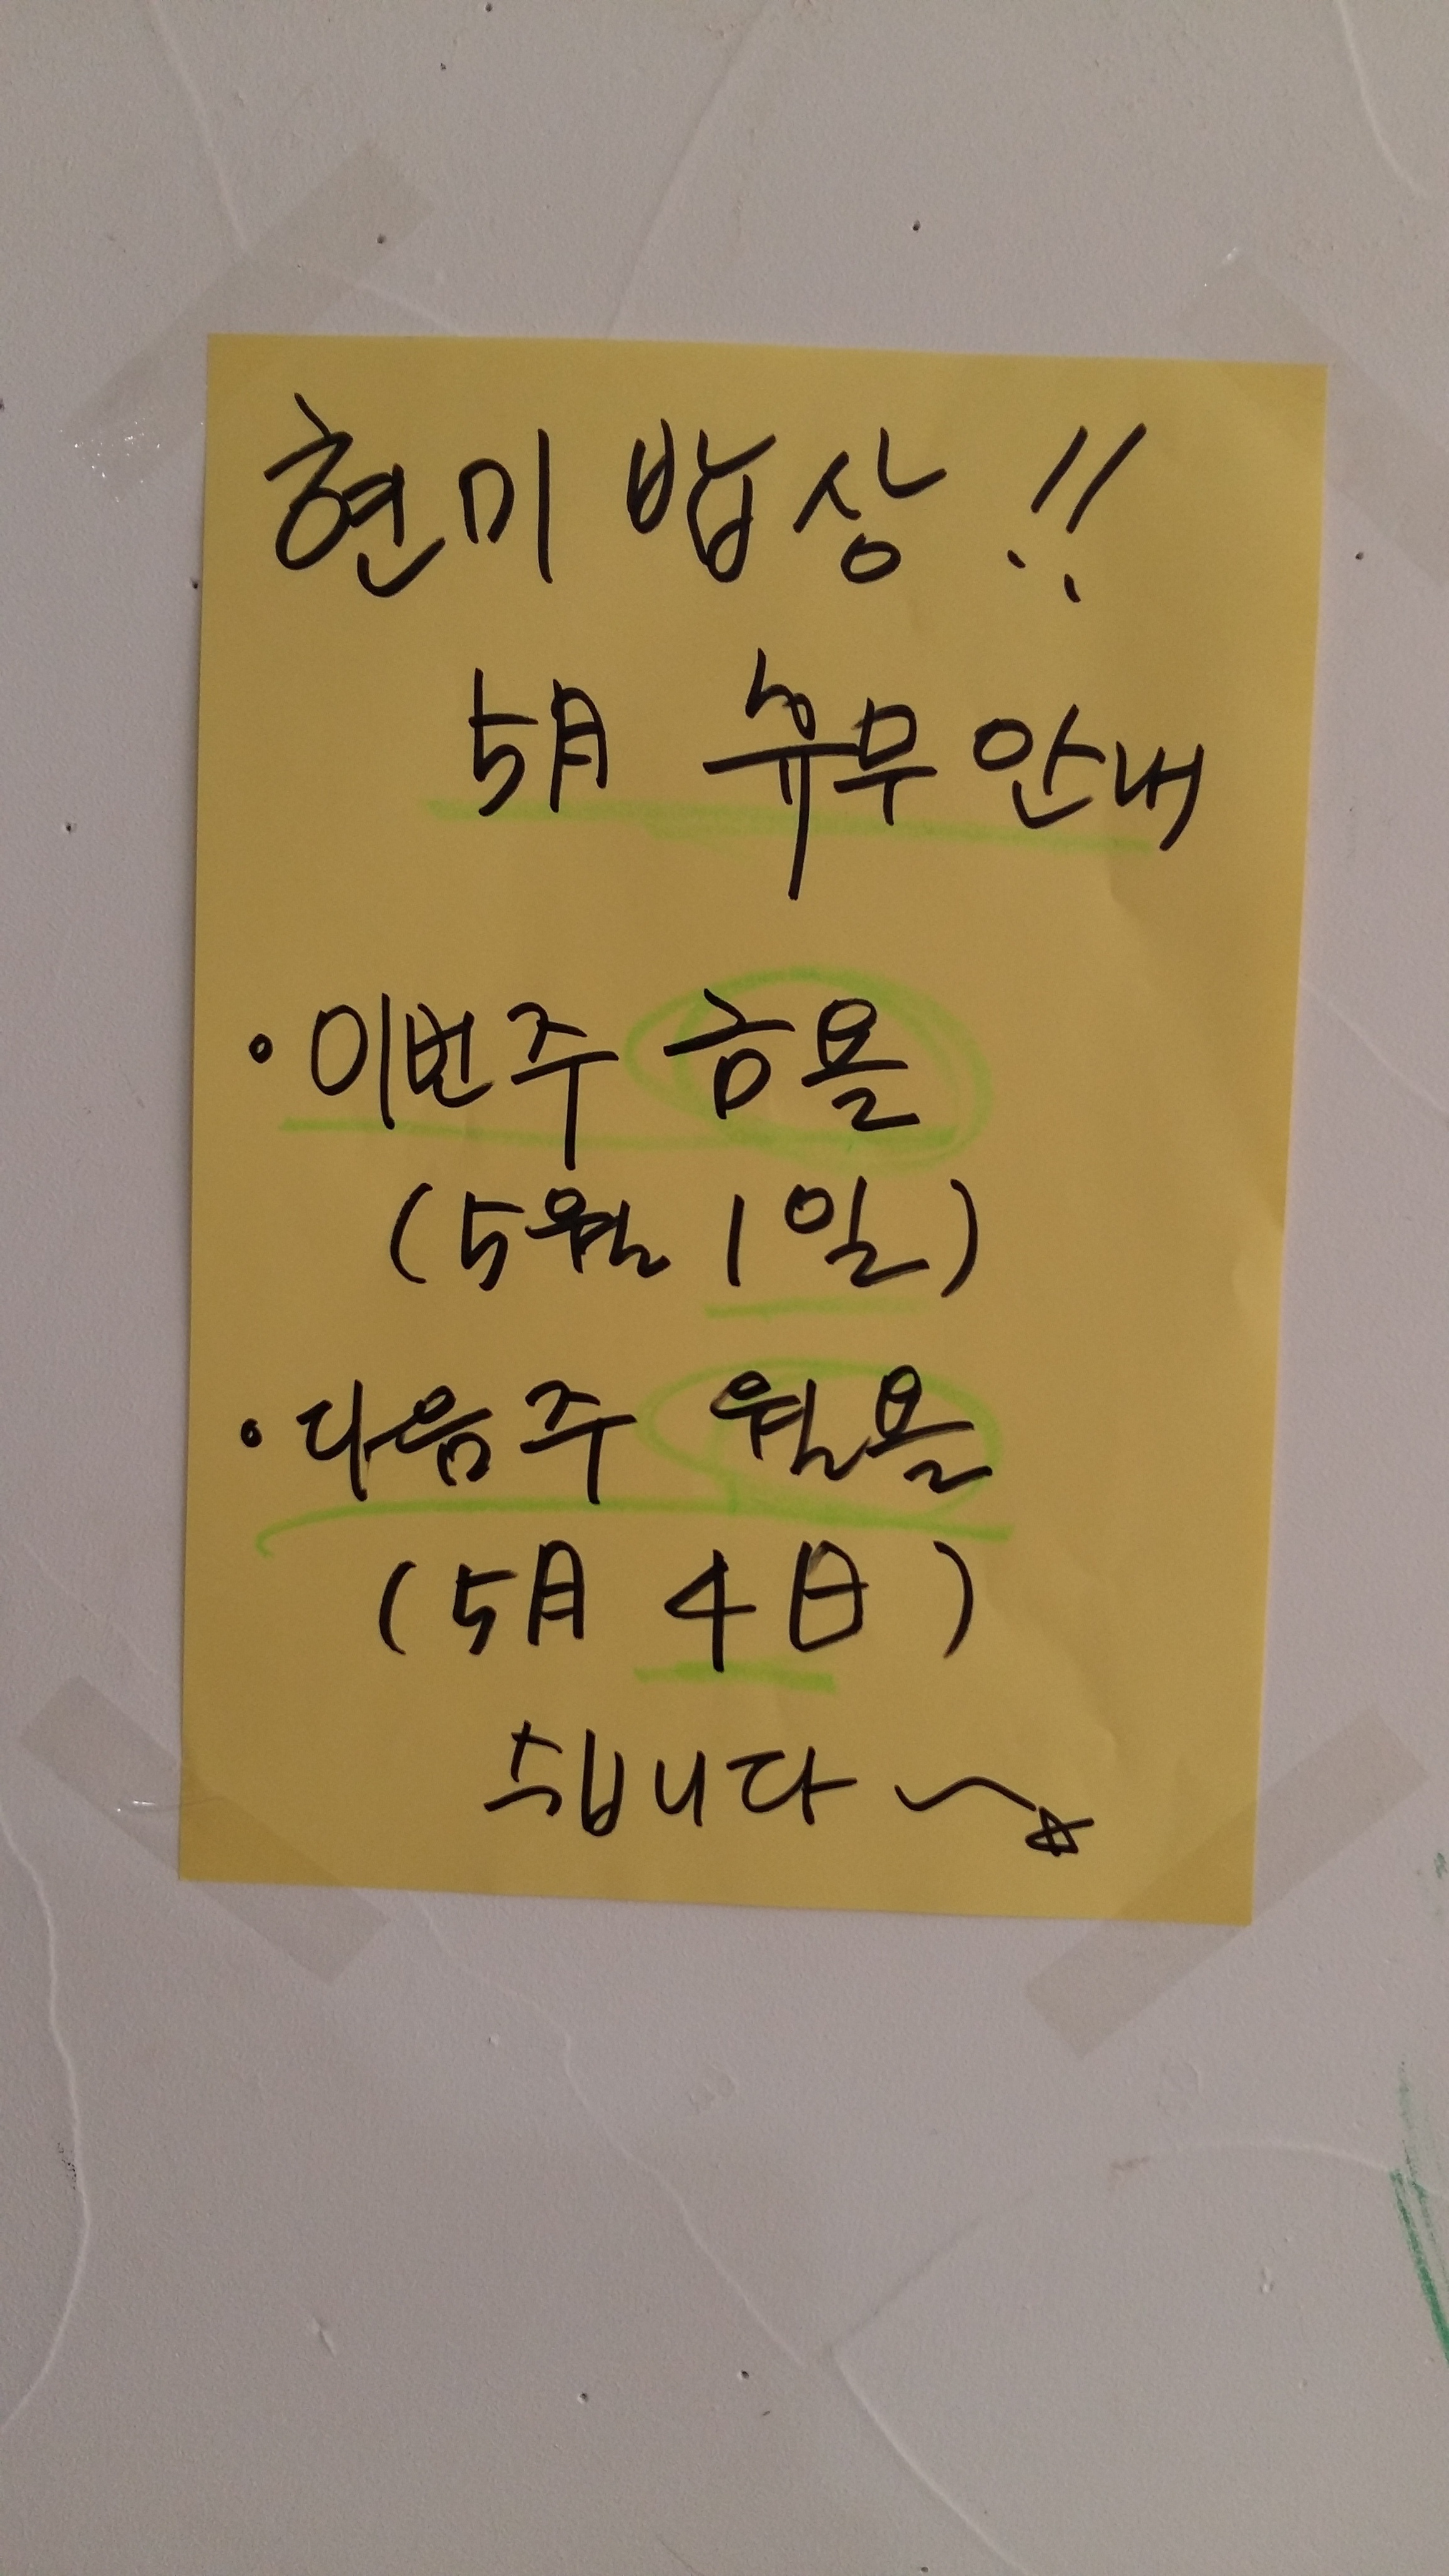 현미 밥상 !!
5月 휴무 안내
• 이번주 금욜
(5월 1일)
• 다음주 월욜
(5月 4日)
쉽니다~☆